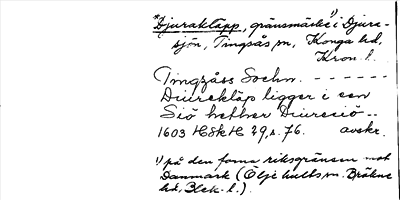 *Djurakläpp, gränsmärke¹) i Djure-
sjön, Tingsås sn, Konga hd,
Kron. l.
Tingzåss Sochn. - - - - - -
Diurekläp ligger i een
Siö hether Diuresiö - -
1603 HSkH 29, s. 76. avskr.
¹) på den forna riksgränsen mot
Danmark (Öljehults sn. Bräkne
hd, Blek. l.).